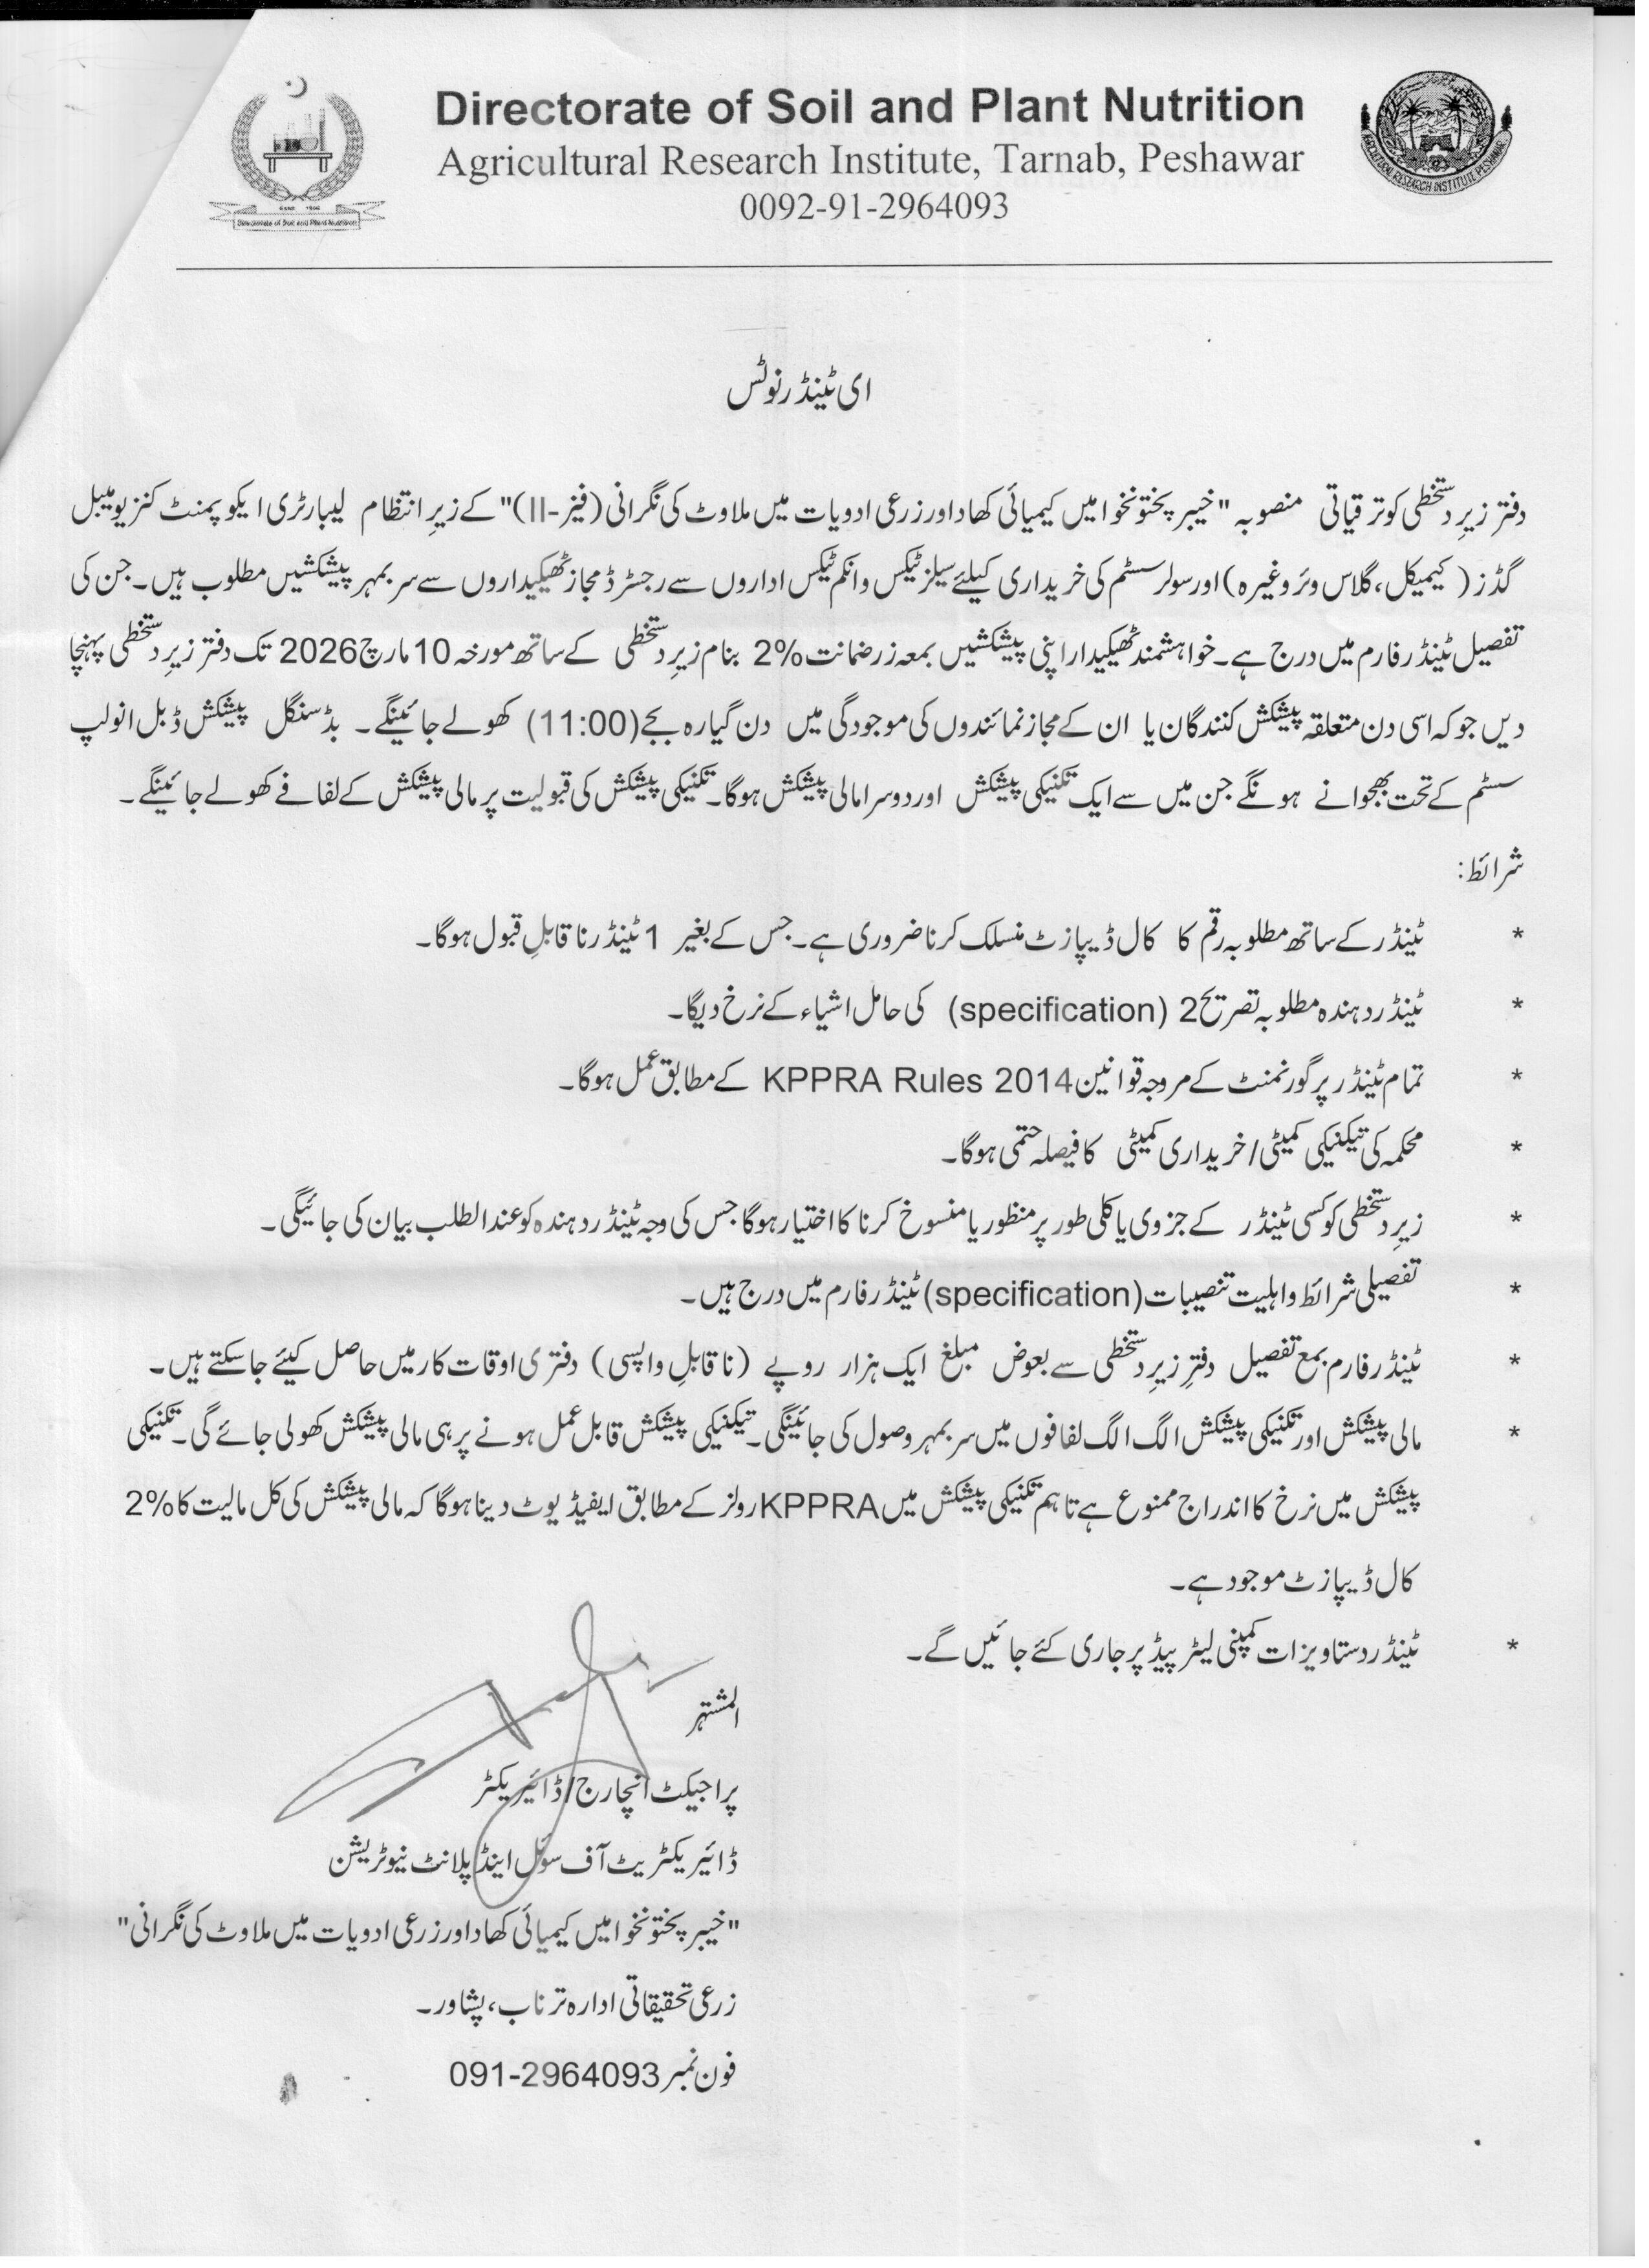 Directorate of Soil and Plant Nutrition
Agricultural Research Institute, Tarnab, Peshawar
0092-91-2964093
Directorate of Soil and Plant Nutrition
AGRICULTURAL RESEARCH INSTITUTE PESHAWAR
ای ٹینڈر نوٹس
دفتر زیرِ دستخطی کو ترقیاتی منصوبہ "خیبر پختونخوا میں کیمیائی کھاد اور زرعی ادویات میں ملاوٹ کی نگرانی (فیز-II)" کے زیرِ انتظام لیبارٹری ایکوپمنٹ کنزیومیبل
گڈز ( کیمیکل، گلاس وئر وغیرہ) اور سولر سسٹم کی خریداری کیلئے سیلز ٹیکس و انکم ٹیکس اداروں سے رجسٹرڈ مجاز ٹھیکیداروں سے سر بمہر پیشکشیں مطلوب ہیں۔ جن کی
تفصیل ٹینڈر فارم میں درج ہے۔ خواہشمند ٹھیکیدار اپنی پیشکشیں بمعہ زر ضمانت 2% بنام زیرِ دستخطی کے ساتھ مورخہ 10 مارچ 2026 تک دفتر زیرِ دستخطی پہنچا
دیں جو کہ اسی دن متعلقہ پیشکش کنندگان یا ان کے مجاز نمائندوں کی موجودگی میں دن گیارہ بجے (11:00) کھولے جائینگے۔ بڈ سنگل پیشکش ڈبل انولپ
سسٹم کے تحت بھجوانے ہونگے جن میں سے ایک تکنیکی پیشکش اور دوسرا مالی پیشکش ہوگا۔ تکنیکی پیشکش کی قبولیت پر مالی پیشکش کے لفافے کھولے جائینگے۔
شرائط:
* ٹینڈر کے ساتھ مطلوبہ رقم کا کال ڈیپازٹ منسلک کرنا ضروری ہے۔ جس کے بغیر 1 ٹینڈر ناقابلِ قبول ہوگا۔
* ٹینڈر دہندہ مطلوبہ تصریح 2 (specification) کی حامل اشیاء کے نرخ دیگا۔
* تمام ٹینڈر پر گورنمنٹ کے مروجہ قوانین KPPRA Rules 2014 کے مطابق عمل ہوگا۔
* محکمہ کی تیکنیکی کمیٹی/خریداری کمیٹی کا فیصلہ حتمی ہوگا۔
* زیرِ دستخطی کو کسی ٹینڈر کے جزوی یا کلی طور پر منظور یا منسوخ کرنا کا اختیار ہوگا جس کی وجہ ٹینڈر دہندہ کو عندالطلب بیان کی جائیگی۔
* تفصیلی شرائط و اہلیت تنصیبات (specification) ٹینڈر فارم میں درج ہیں۔
* ٹینڈر فارم بمع تفصیل دفترِ زیرِ دستخطی سے بعوض مبلغ ایک ہزار روپے (ناقابلِ واپسی) دفتری اوقات کار میں حاصل کیئے جاسکتے ہیں۔
* مالی پیشکش اور تکنیکی پیشکش الگ الگ لفافوں میں سر بمہر وصول کی جائینگی۔ تیکنیکی پیشکش قابل عمل ہونے پر ہی مالی پیشکش کھولی جائے گی۔ تکنیکی
پیشکش میں نرخ کا اندراج ممنوع ہے تاہم تکنیکی پیشکش میں KPPRA رولز کے مطابق ایفیڈیوٹ دینا ہوگا کہ مالی پیشکش کی کل مالیت کا 2%
کال ڈیپازٹ موجود ہے۔
* ٹینڈر دستاویزات کمپنی لیٹر پیڈ پر جاری کئے جائیں گے۔
المشتہر
پراجیکٹ انچارج/ڈائیریکٹر
ڈائیریکٹریٹ آف سوئل اینڈ پلانٹ نیوٹریشن
"خیبر پختونخوا میں کیمیائی کھاد اور زرعی ادویات میں ملاوٹ کی نگرانی"
زرعی تحقیقاتی ادارہ ترناب، پشاور۔
فون نمبر 091-2964093